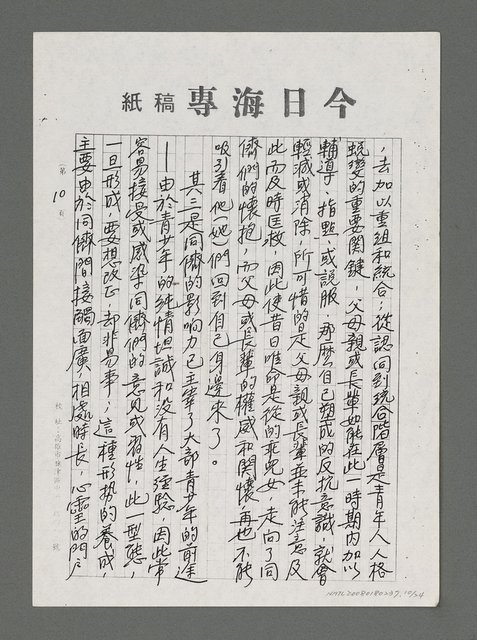 今日海專稿紙
，去加以重組和統合；從認同到統合階層是青年人人格
蛻變的重要關鍵，父母親或長輩如能在此一時期內加以
輔導、指點、或說服，那麼自已塑成的反抗意識，就會
輕減或消除，所可惜的是父母親或長輩並未能注意及
此而及時匡救，因此使昔日唯命是從的乖兒女，走向了同
儕們的懷抱，而父母或長輩的權威和關懷，再也不能
吸引着他(她)們回到自己身邊來了。
其三是同儕的影响力已主宰了大部青少年的前途
—由於青少年的純情坦誠和沒有人生經驗，因此常
容易接受或感染同儕們的意見或習性，此一型態，
一旦形成，要想改正，却非易事；這種形势的養成，
主要由於同儕間接觸面廣，相處時長，心靈的門戶
(第10頁
校址：高雄市
號
NMTL20080180237, 10/24